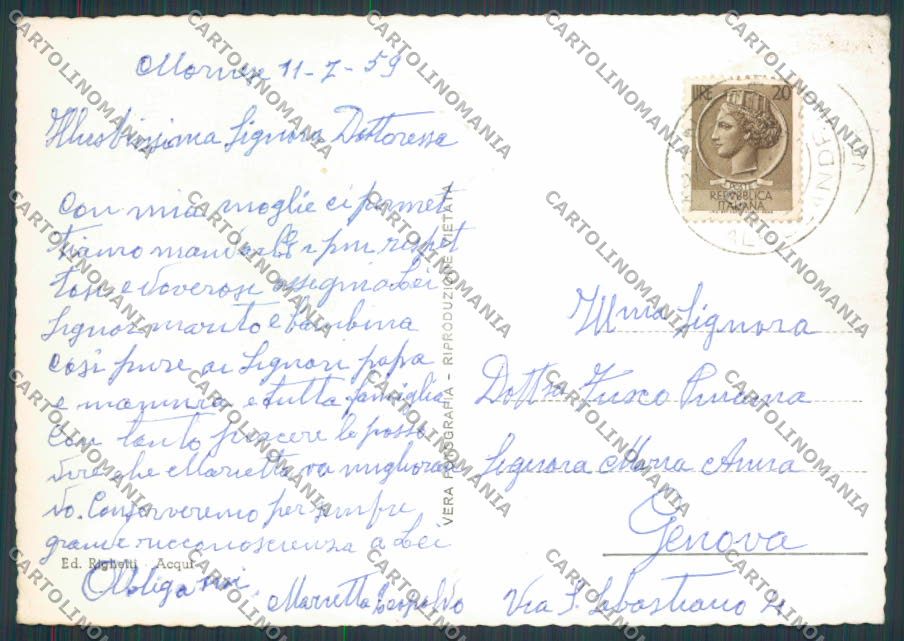 Mornese 11-7-59
Illustrissima Signora Dottoressa
Con mia moglie ci permet
tiamo mandarLe i piu rispet
tosi e doverosi ossegni a Lei
Signor marito e bambina
così pure ai Signori papa
e mamma e tutta famiglia
Con tanto piacere le posso
dire che Marietta va miglioran
do. Conserveremo per sempre
grande riconoscienza a Lei
Ed. Righetti Acqui
Obbliga
Marietta Leopoldo
VERA FOTOGRAFIA - RIPRODUZIONE VIETATA
LIRE 20
POSTE
REPVBBLICA
ITALIANA
Ill ma Signora
Dott ssa Fusco
Signora Maria Anna
Genova
Via S. Sebastiano
CARTOLINOMANIA